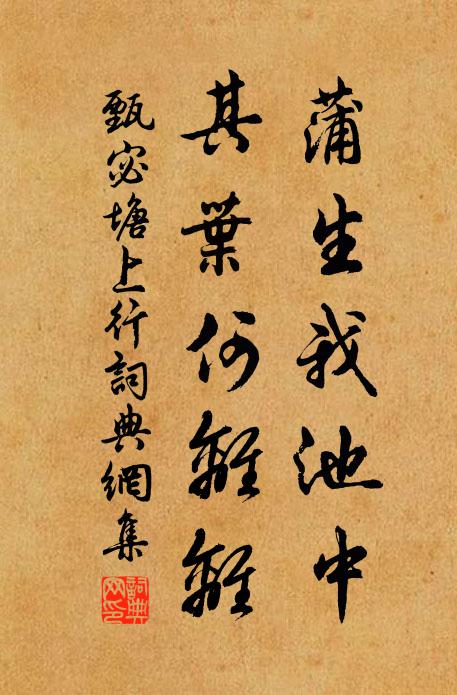 蒲生我池中
其葉何離離
甄宓塘上行詞典網集
詞典網印